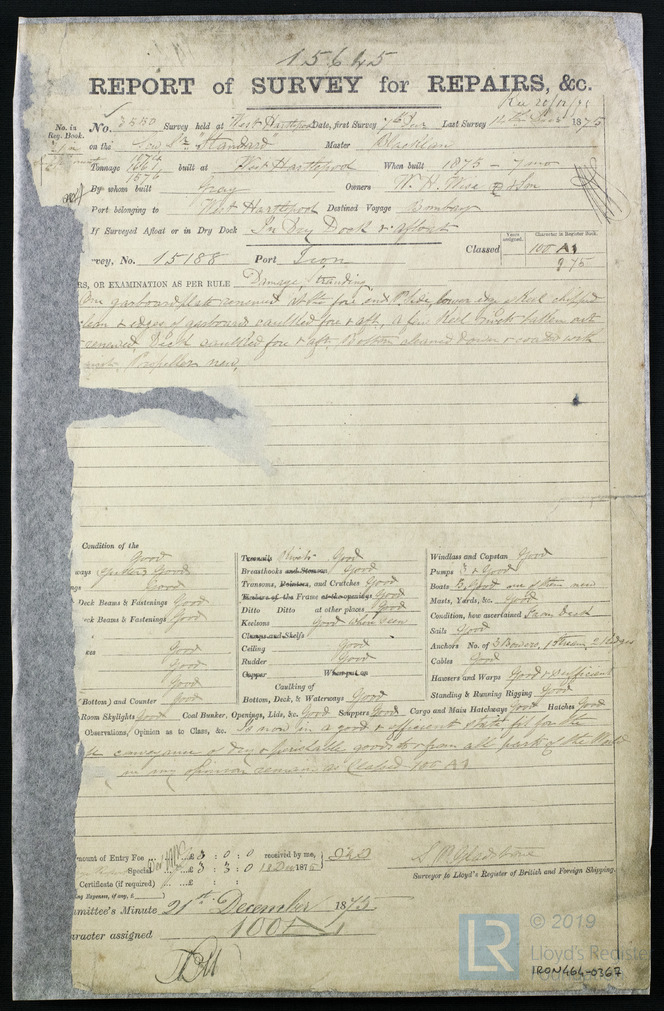 15645
REPORT of SURVEY for REPAIRS, &c.
Rec 20/12/75
No. in Reg. Book.
No. 3580 Survey held at West Hartlepool Date, first Survey 7th Decr Last Survey 11th Decr 1875
on the Iron S.s. "Standard" Master
Tonnage built at West Hartlepool When built 1875 - 7 mo
By whom built Gray Owners W. H. Wise & Son
Port belonging to West Hartlepool Destined Voyage Bombay
If Surveyed Afloat or in Dry Dock In Dry Dock & afloat
Years assigned. Character in Register Book.
vey, No. 15188 Port Iron Classed 100 A1
9 75
RS, OR EXAMINATION AS PER RULE Damage, Stranding
One garboard plate renewed at the fore end P. side, lower edge & Keel chipped
& edges of garboard caulked fore & aft, a few Keel rivets taken out
renewed, caulked fore & aft, bottom cleaned down & coated with
Propeller new,
Condition of the
Good
ways Good
ngs Good
Deck Beams & Fastenings Good
eck Beams & Fastenings Good
Good
Good
Good
Bottom) and Counter Good
Treenails Rivets Good
Breasthooks and Stemson Good
Transoms, Pointers, and Crutches Good
Timbers of the Frame at the openings Good
Ditto Ditto at other places Good
Keelsons Good when seen
Clamps and Shelfs
Ceiling Good
Rudder Good
Copper When put on
Caulking of
Bottom, Deck, & Waterways Good
Windlass and Capstan Good
Pumps Good
Boats Good one of them new
Masts, Yards, &c. Good
Condition, how ascertained From Deck
Sails Good
Anchors No. of 3 Bowers, 1 Stream, 2 Kedges
Cables Good
Hawsers and Warps Good & sufficient
Standing & Running Rigging Good
Room Skylights Good Coal Bunker, Openings, Lids, &c. Good Scuppers Good Cargo and Main Hatchways Good Hatches Good
Observations, Opinion as to Class, &c. Is now in a good & efficient state fit for the
conveyance of dry & perishable goods to & from all parts of the World
in my opinion remain as Classed 100 A1
mount of Entry Fee £ 3 : 0 : 0 received by me,
Special £ 3 : 3 : 0 18 Dec 1875
Certificate (if required) £ :
ling Expenses, if any, £
Surveyor to Lloyd's Register of British and Foreign Shipping.
mmittee's Minute 21st December 1875
aracter assigned 100 A1
LR
© 2019
Lloyd's Register
Foundation
IRON464-0367